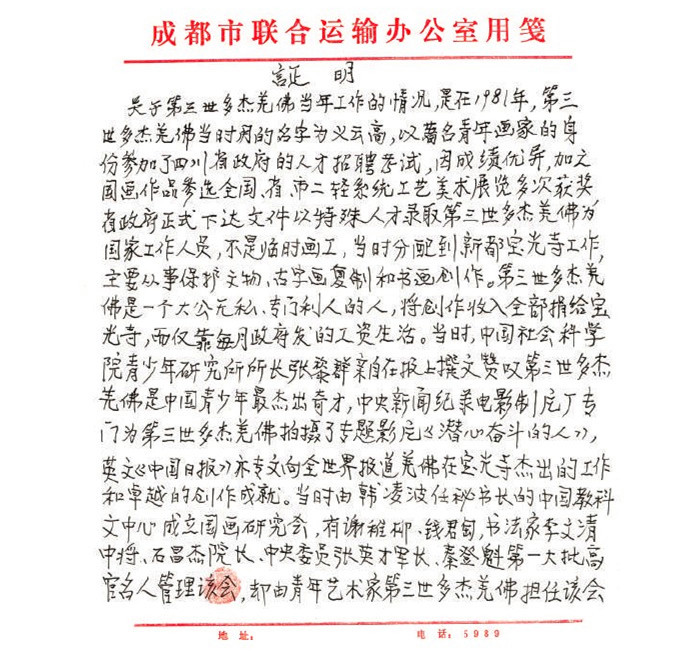 成都市联合运输办公室用笺
証 明
关于第三世多杰羌佛当年工作的情况，是在1981年，第三
世多杰羌佛当时用的名字为义云高，以著名青年画家的身
份参加了四川省政府的人才招聘考试，因成绩优异，加之
国画作品参选全国、省、市二轻系统工艺美术展览多次获奖
省政府正式下达文件以特殊人才录取第三世多杰羌佛为
国家工作人员，不是临时画工，当时分配到新都宝光寺工作，
主要从事保护文物、古字画复制和书画创作。第三世多杰羌
佛是一个大公无私、专门利人的人，将创作收入全部捐给宝
光寺，而仅靠每月政府发的工资生活。当时，中国社会科学
院青少年研究所所长张黎群亲自在报上撰文赞叹第三世多杰
羌佛是中国青少年最杰出奇才，中央新闻纪录电影制片厂专
门为第三世多杰羌佛拍摄了专题影片《潜心奋斗的人》，
英文《中国日报》亦专文向全世界报道羌佛在宝光寺杰出的工作
和卓越的创作成就。当时由韩凌波任秘书长的中国教科
文中心成立国画研究会，有谢稚柳、钱君匋，书法家李文清
中将、石昌杰院长、中央委员张英才军长、秦登魁第一大批高
官名人管理该会，却由青年艺术家第三世多杰羌佛担任该会
地 址： 电 话：5989